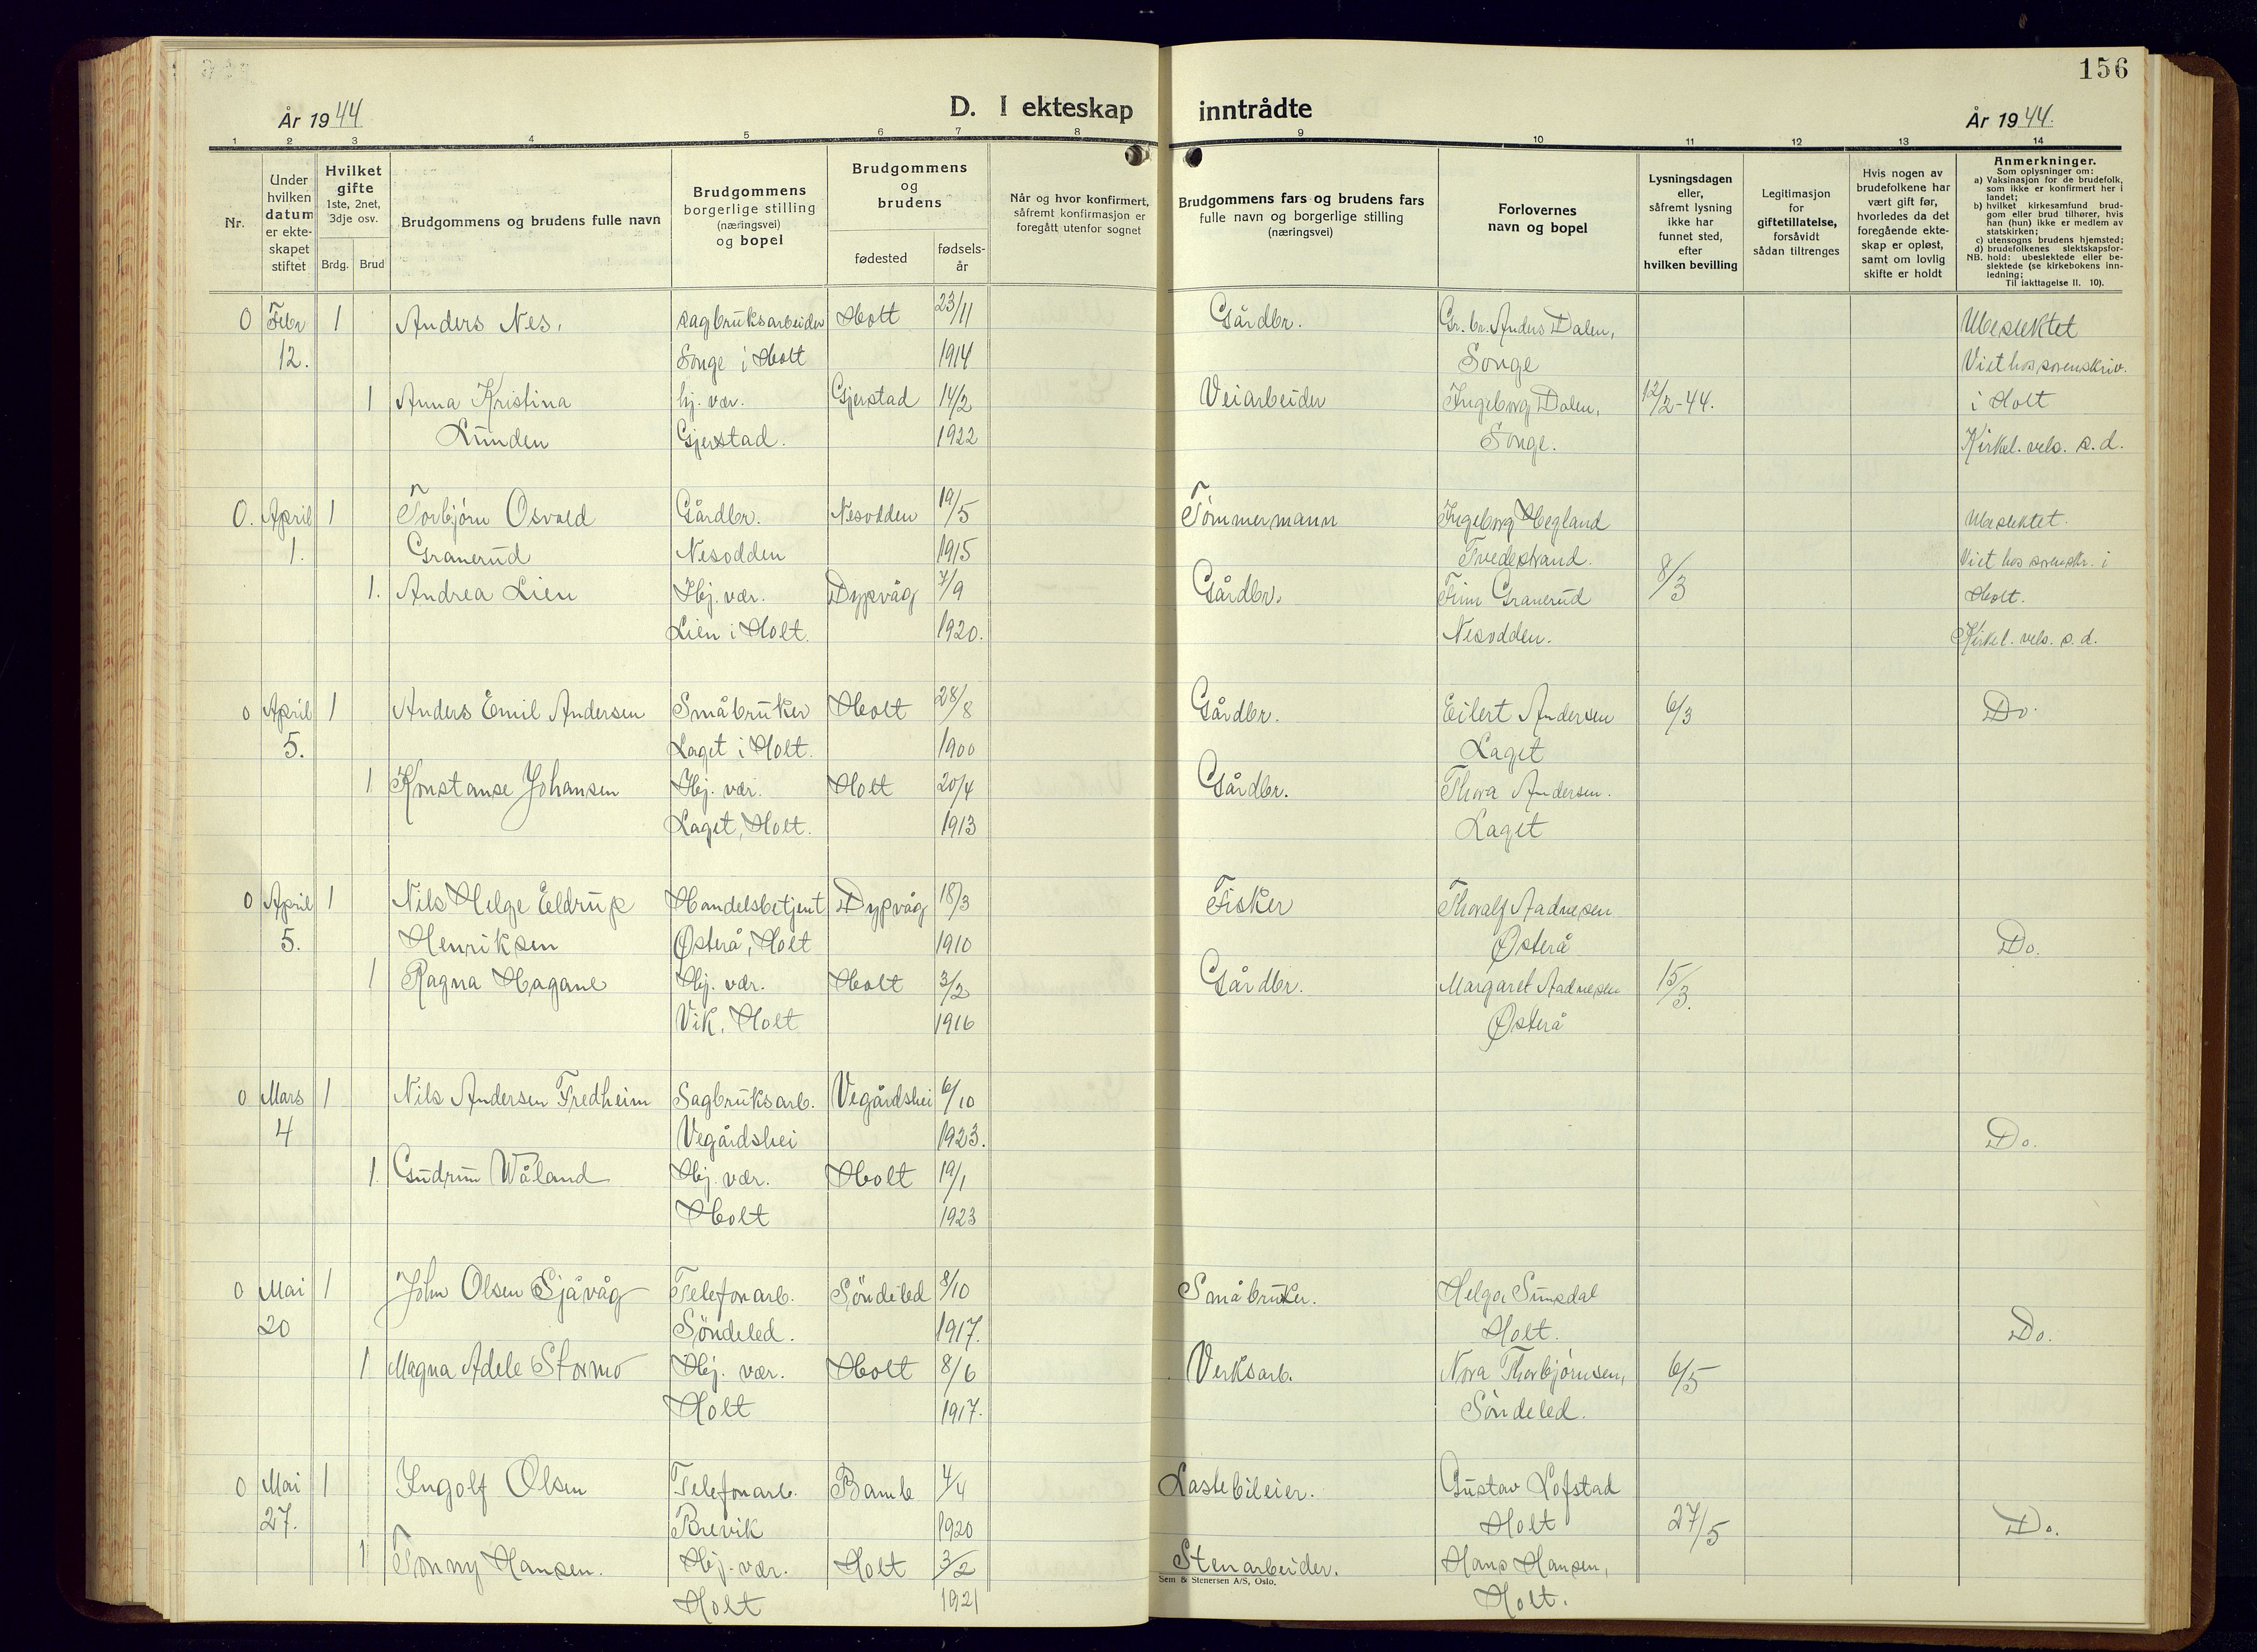 156
År 1944
D. I ekteskap inntrådte
År 1944.
1 2 3 4 5 6 7 8 9 10 11 12 13 14
Nr.
Under hvilken datum er ekte-skapet stiftet
Hvilket gifte 1ste, 2net, 3dje osv.
Brdg. Brud
Brudgommens og brudens fulle navn
Brudgommens borgerlige stilling (næringsvei) og bopel
Brudgommens og brudens
fødested
fødsels-år
Når og hvor konfirmert, såfremt konfirmasjon er foregått utenfor sognet
Brudgommens fars og brudens fars fulle navn og borgerlige stilling (næringsvei)
Forlovernes navn og bopel
Lysningsdagen eller, såfremt lysning ikke har funnet sted, efter hvilken bevilling
Legitimasjon for giftetillatelse, forsåvidt sådan tiltrenges
Hvis nogen av brudefolkene har vært gift før, hvorledes da det foregående ekte-skap er opløst, samt om lovlig skifte er holdt
Anmerkninger.
Som oplysninger om:
a) Vaksinasjon for de brudefolk, som ikke er konfirmert her i landet;
b) hvilket kirkesamfund brud-gom eller brud tilhører, hvis han (hun) ikke er medlem av statskirken;
c) utensogns brudens hjemsted;
d) brudefolkenes slektskapsfor-
NB. hold: ubeslektede eller be-slektede (se kirkebokens inn-ledning;
Til iakttagelse II. 10).
0 Febr 1 Anders Nes, sagbruksarbeider Holt 23/11 Gårdbr. Gr.br. Anders Dalen, Ubeslektet
12. Songe i Holt 1914 Songe Viet hos sorenskriv.
1 Anna Kristina hj. vær. Gjerstad 14/2 Veiarbeider Ingeborg Dalen, 12/2-44. i Holt
Lunden Gjerstad. 1922 Songe. Kirkel. vels. s.d.
0. April 1 Torbjørn Osvald Gårdbr. Nesodden 19/5 Tømmermann Ingeborg Hegland Ubeslektet.
1. Granerud Nesodden 1915 Tvedestrand. Viet hos sorenskr. i
1. Andrea Lien Hj. vær. Dypvåg 7/9 Gårdbr. Finn Granerud 8/3 Holt.
Lien i Holt. 1920. Nesodden. Kirkel. vels. s.d.
0 April 1 Anders Emil Andersen Småbruker Holt 28/8 Gårdbr. Eilert Andersen 6/3 Do.
5. Laget i Holt. 1900 Laget
1 Konstanse Johansen Hj. vær. Holt 20/4 Gårdbr. Thora Andersen.
Laget, Holt. 1913 Laget
0 April 1 Nils Helge Eldrup Handelsbetjent Dypvåg 18/3 Fisker Thoralf Aadnesen
5. Henriksen Østerå, Holt 1910 Østerå Do.
1 Ragna Hagane Hj. vær. Holt 3/2 Gårdbr. Margaret Aadnesen 15/3.
Vik, Holt 1916 Østerå
0 Mars 1 Nils Andersen Fredheim Sagbruksarb. Vegårdshei 6/10
4 Vegårdshei 1923. Do.
1. Gudrun Wåland Hj. vær. Holt 19/1
Holt 1923
0 Mai 1 John Olsen Sjåvåg Telefonarb. Söndeled 8/10 Småbruker. Helga Sunsdal
20 Söndeled. 1917. Holt. Do.
1 Magna Adele Stormo Hj. vær. Holt 8/6 Verksarb. Nora Thorbjørnsen, 6/5
Holt 1917. Söndeled.
0 Mai 1 Ingolf Olsen Telefonarb. Bamle 4/4 Lastebileier. Gustav Lofstad
27. Brevik 1920 Holt 27/5 Do.
1 Tonny Hansen. Hj. vær. Holt 3/2 Stenarbeider. Hans Hansen,
Sem & Stenersen A/S, Oslo.
Holt 1921 Holt.